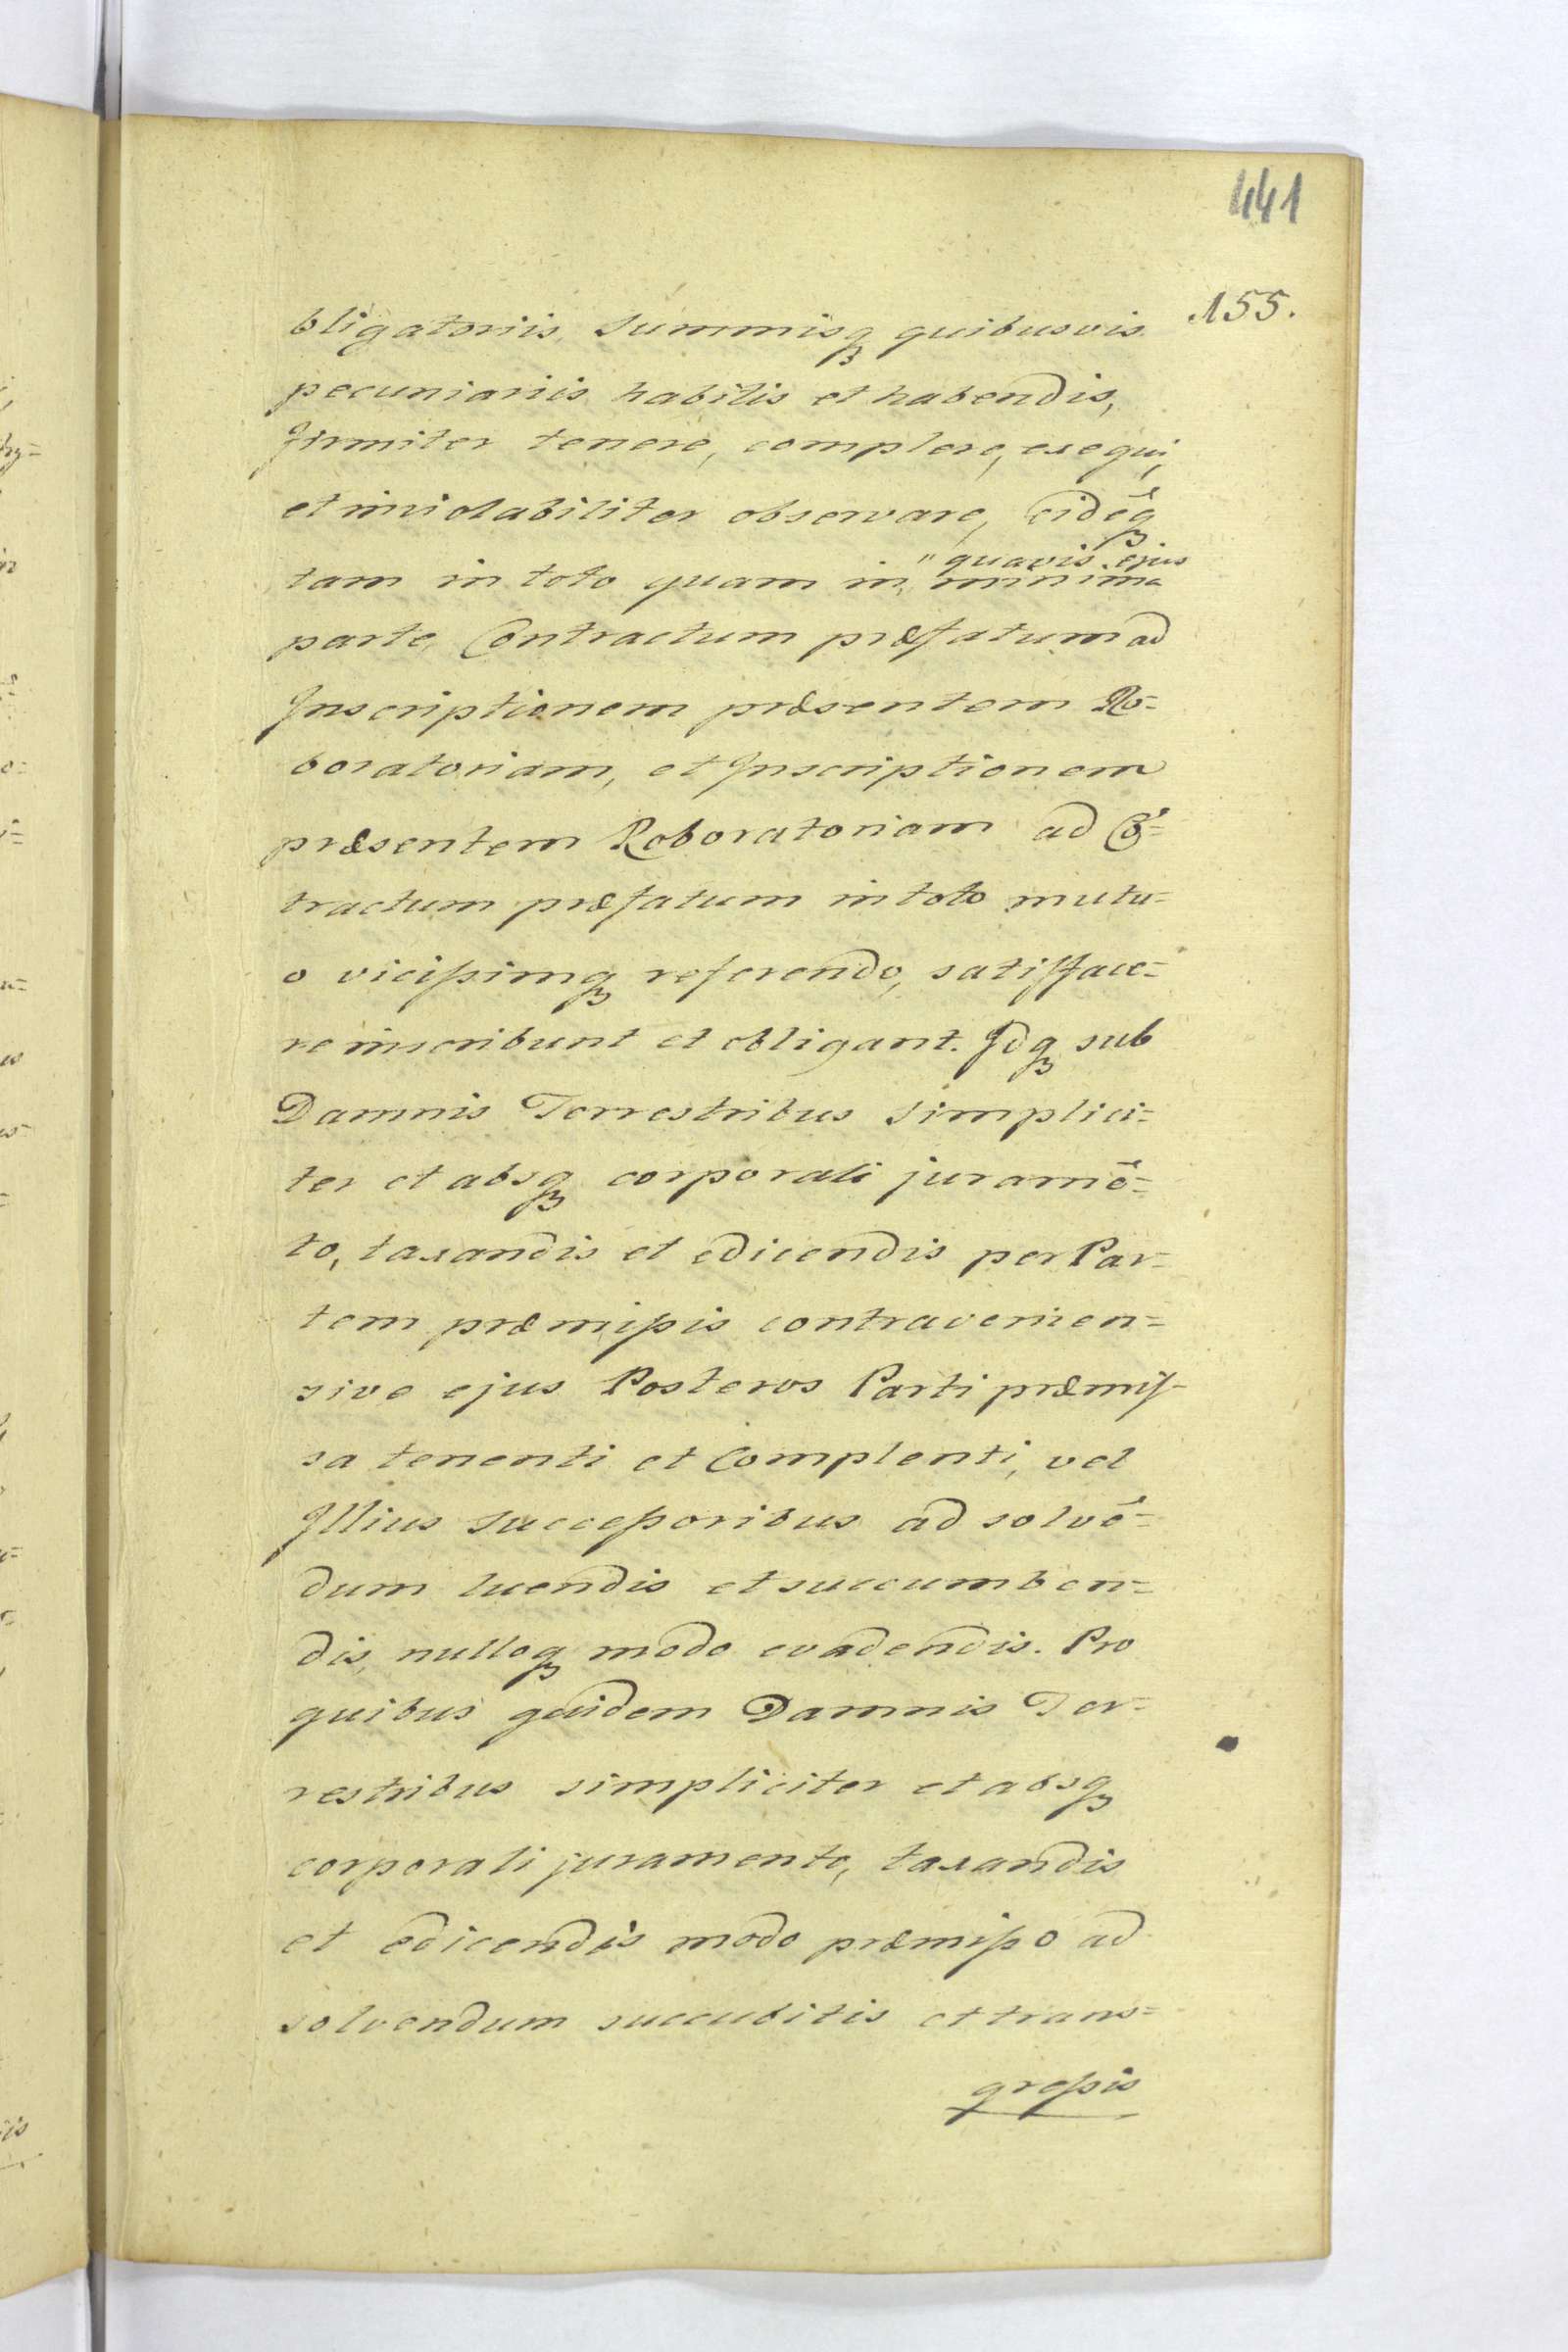 441
155.
bligatoriis, Summisqꝫ quibusvis
pecuniariis habitis et habendis,
firmiter tenere, complere, exequi,
et inviolabiliter observare, eidēqꝫ
" quavis ejus
tam in toto quam in, minima
parte, Contractum præfatum ad
Inscriptionem præsentem Ro=
boratoriam, et Inscriptionem
præsentem Roboratoriam ad Cō=
tractum præfatum in toto mutu=
o vicißimqꝫ referendo, satisface=
re inscribunt et obligant. Idqꝫ sub
Damnis Terrestribus simplici=
ter et absqꝫ corporali juramē=
to, taxandis et edicendis per Par=
tem præmißis contravenien=
sive ejus Posteros Parti præmis=
sa tenenti et Complenti, vel
Illius succeßoribus ad solvē=
dum luendis et succumben=
dis, nulloqꝫ modo evadendis. Pro
quibus quidem Damnis Ter=
restribus simpliciter et absqꝫ
corporali juramento, taxandis
et edicendis modo præmißo ad
solvendum succubitis et trans=
greßis